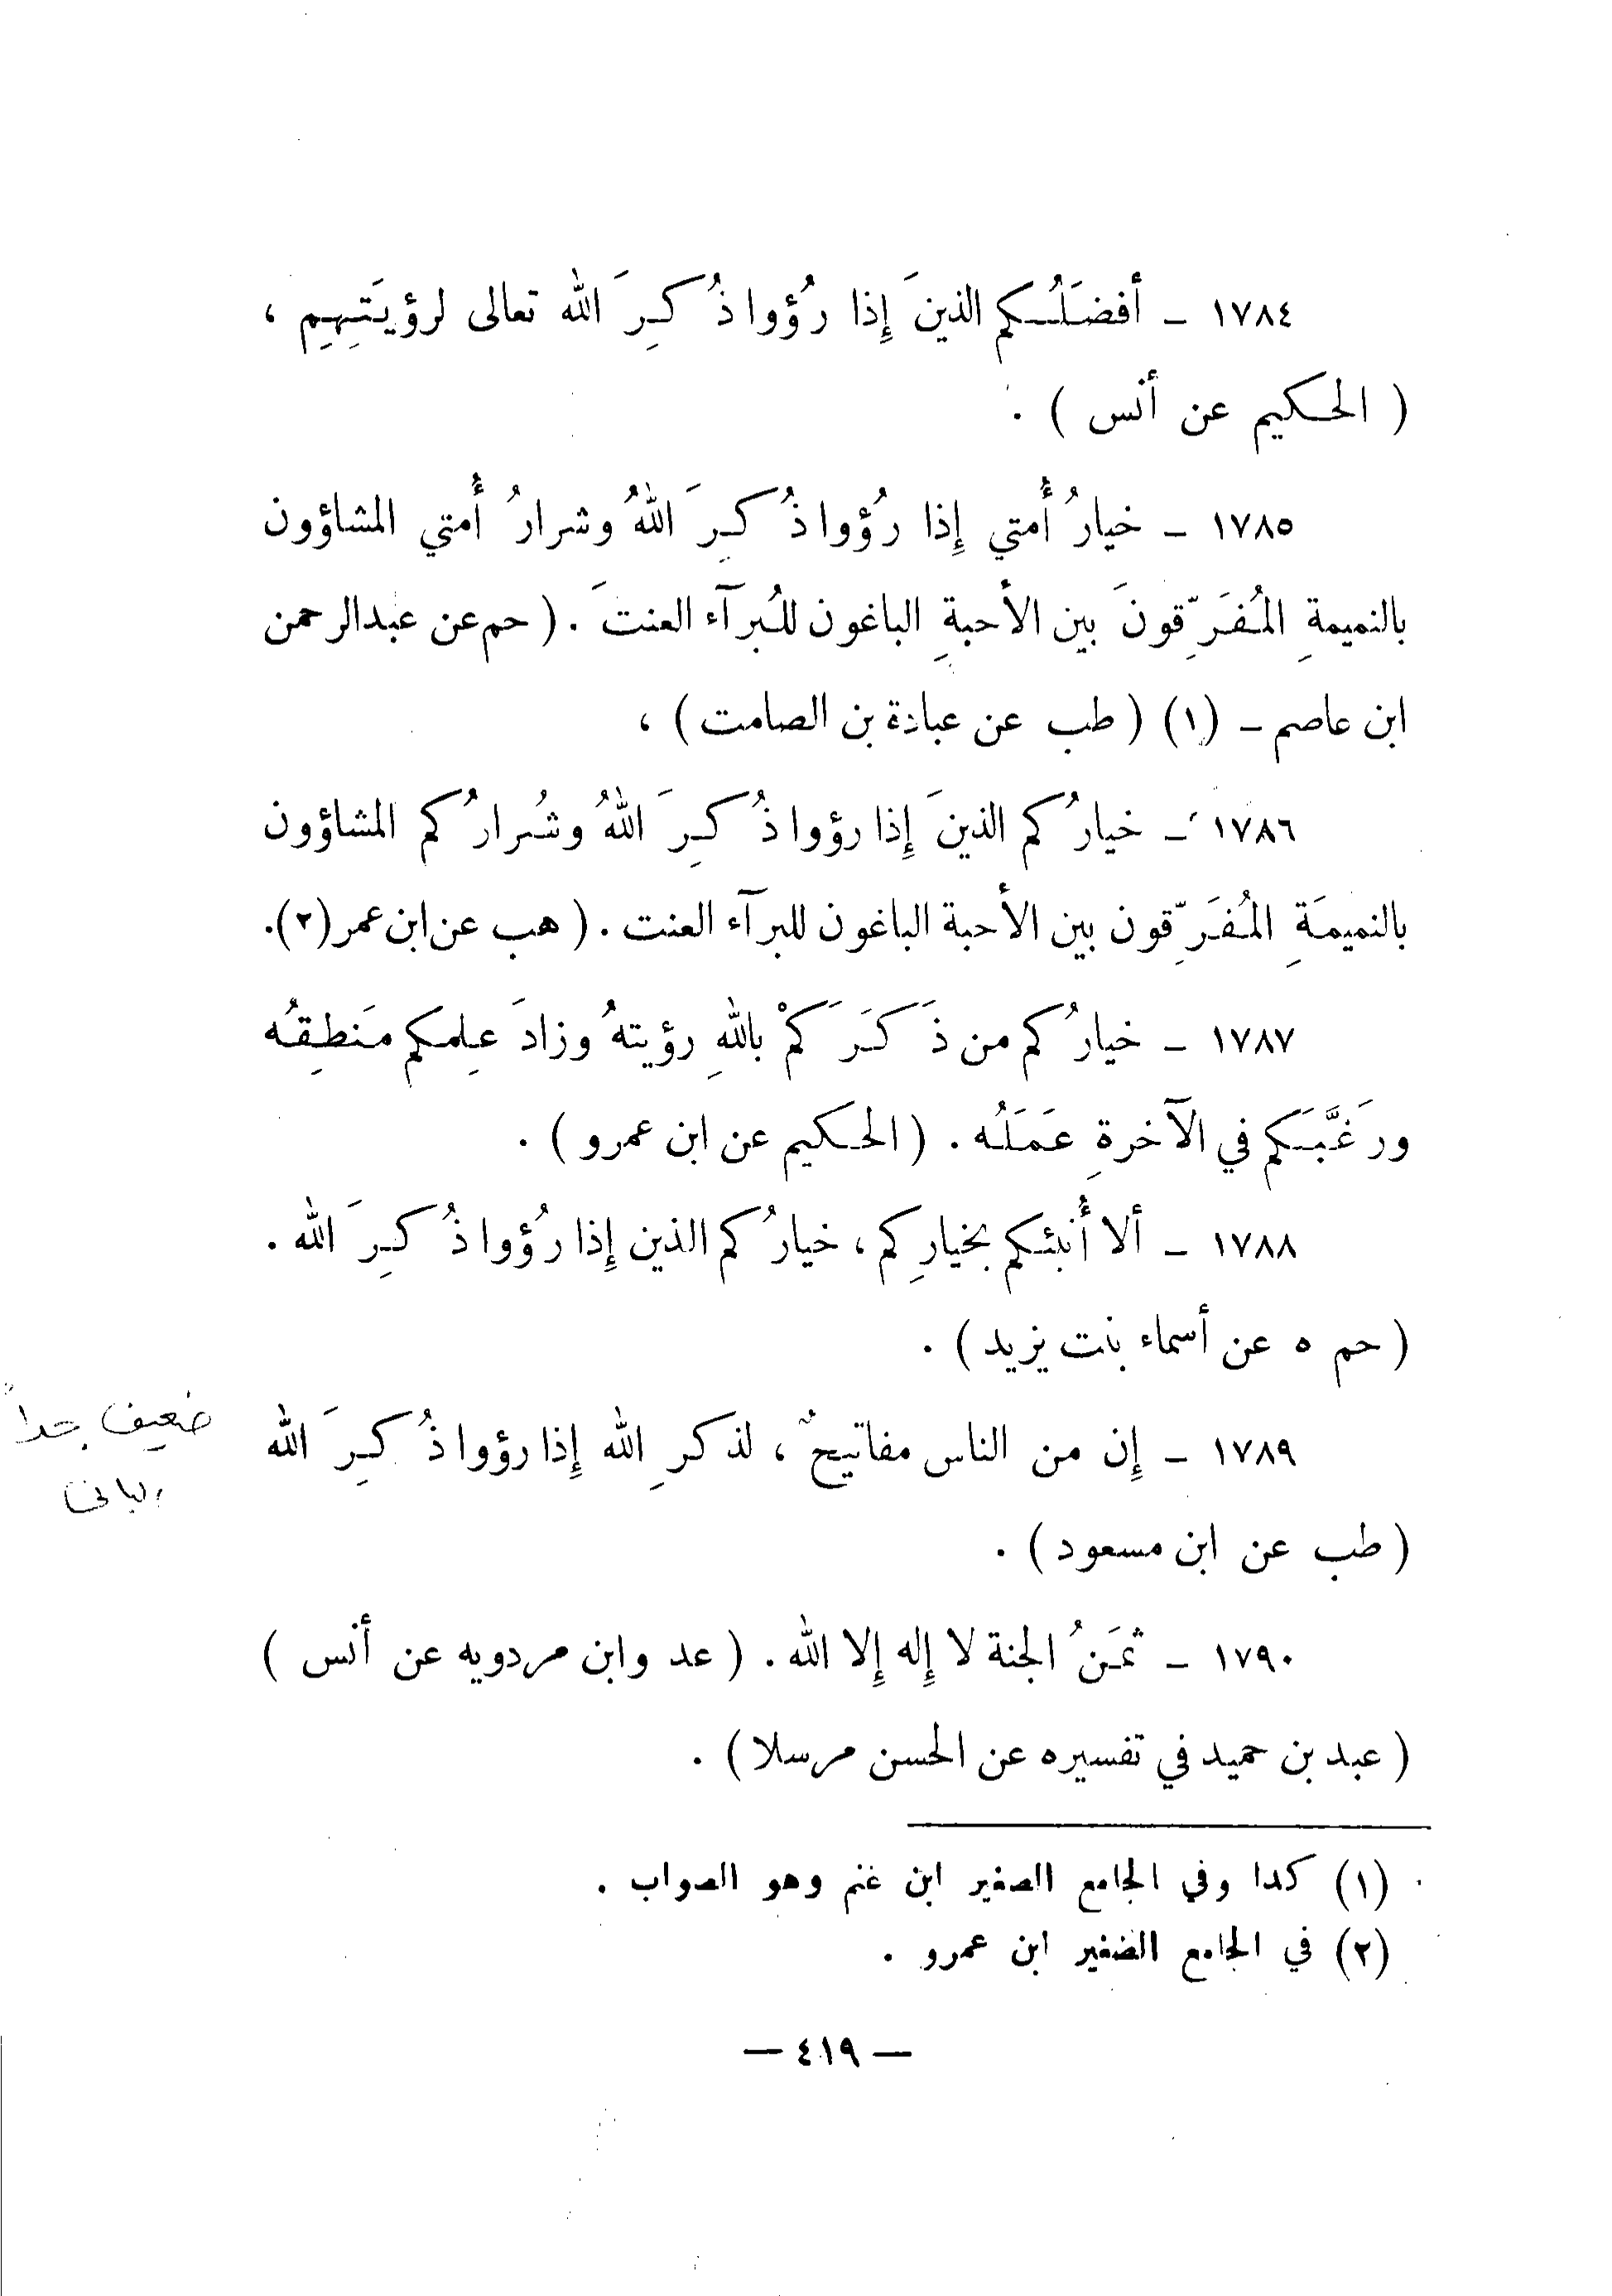 ١٧٨٤ ـ أفضَلُكم الذينَ إِذا رُؤوا ذُكِرَ الله تعالى لرؤيَتِهِم ،
( الحكيم عن أنس ) .
١٧٨٥ ـ خيارُ أُمتي إِذا رُؤوا ذُكِرَ اللهُ وشرارُ أُمتي المشاؤون
بالنميمةِ المُفَرِّقونَ بين الأحبةِ الباغون للبُرآء العنتَ . ( حم عن عبدالرحمن
ابن عاصم ـ (١) ( طب عن عبادة بن الصامت ) ،
١٧٨٦ ـ خيارُكم الذينَ إِذا رؤوا ذُكِرَ اللهُ وشُرارُكم المشاؤون
بالنميمَةِ المُفَرِّقون بين الأحبة الباغون للبرآء العنت . ( هب عن ابن عمر (٢).
١٧٨٧ ـ خيارُكم من ذَكَرَكمْ باللهِ رؤيتهُ وزادَ عِلمكم مَنطِقُه
ورَغَّبَكم في الآخرةِ عَمَلُه . ( الحكيم عن ابن عمرو ) .
١٧٨٨ ـ ألا أُنبئكم بخيارِكم ، خيارُكم الذين إِذا رُؤوا ذُكِرَ الله .
( حم ه عن أسماء بنت يزيد ) .
١٧٨٩ ـ إِن من الناس مفاتيحٌ ، لذكرِ الله إِذا رؤوا ذُكِرَ الله
ضعيف جداً
البانى
( طب عن ابن مسعود ) .
١٧٩٠ ـ ثمَنُ الجنة لا إِله إِلا الله . ( عد وابن مردويه عن أنس )
( عبد بن حميد في تفسيره عن الحسن مرسلا ) .
(١) كذا وفي الجامع الصغير ابن غنم وهو الصواب .
(٢) في الجامع الصغير ابن عمرو .
— ٤١٩ —